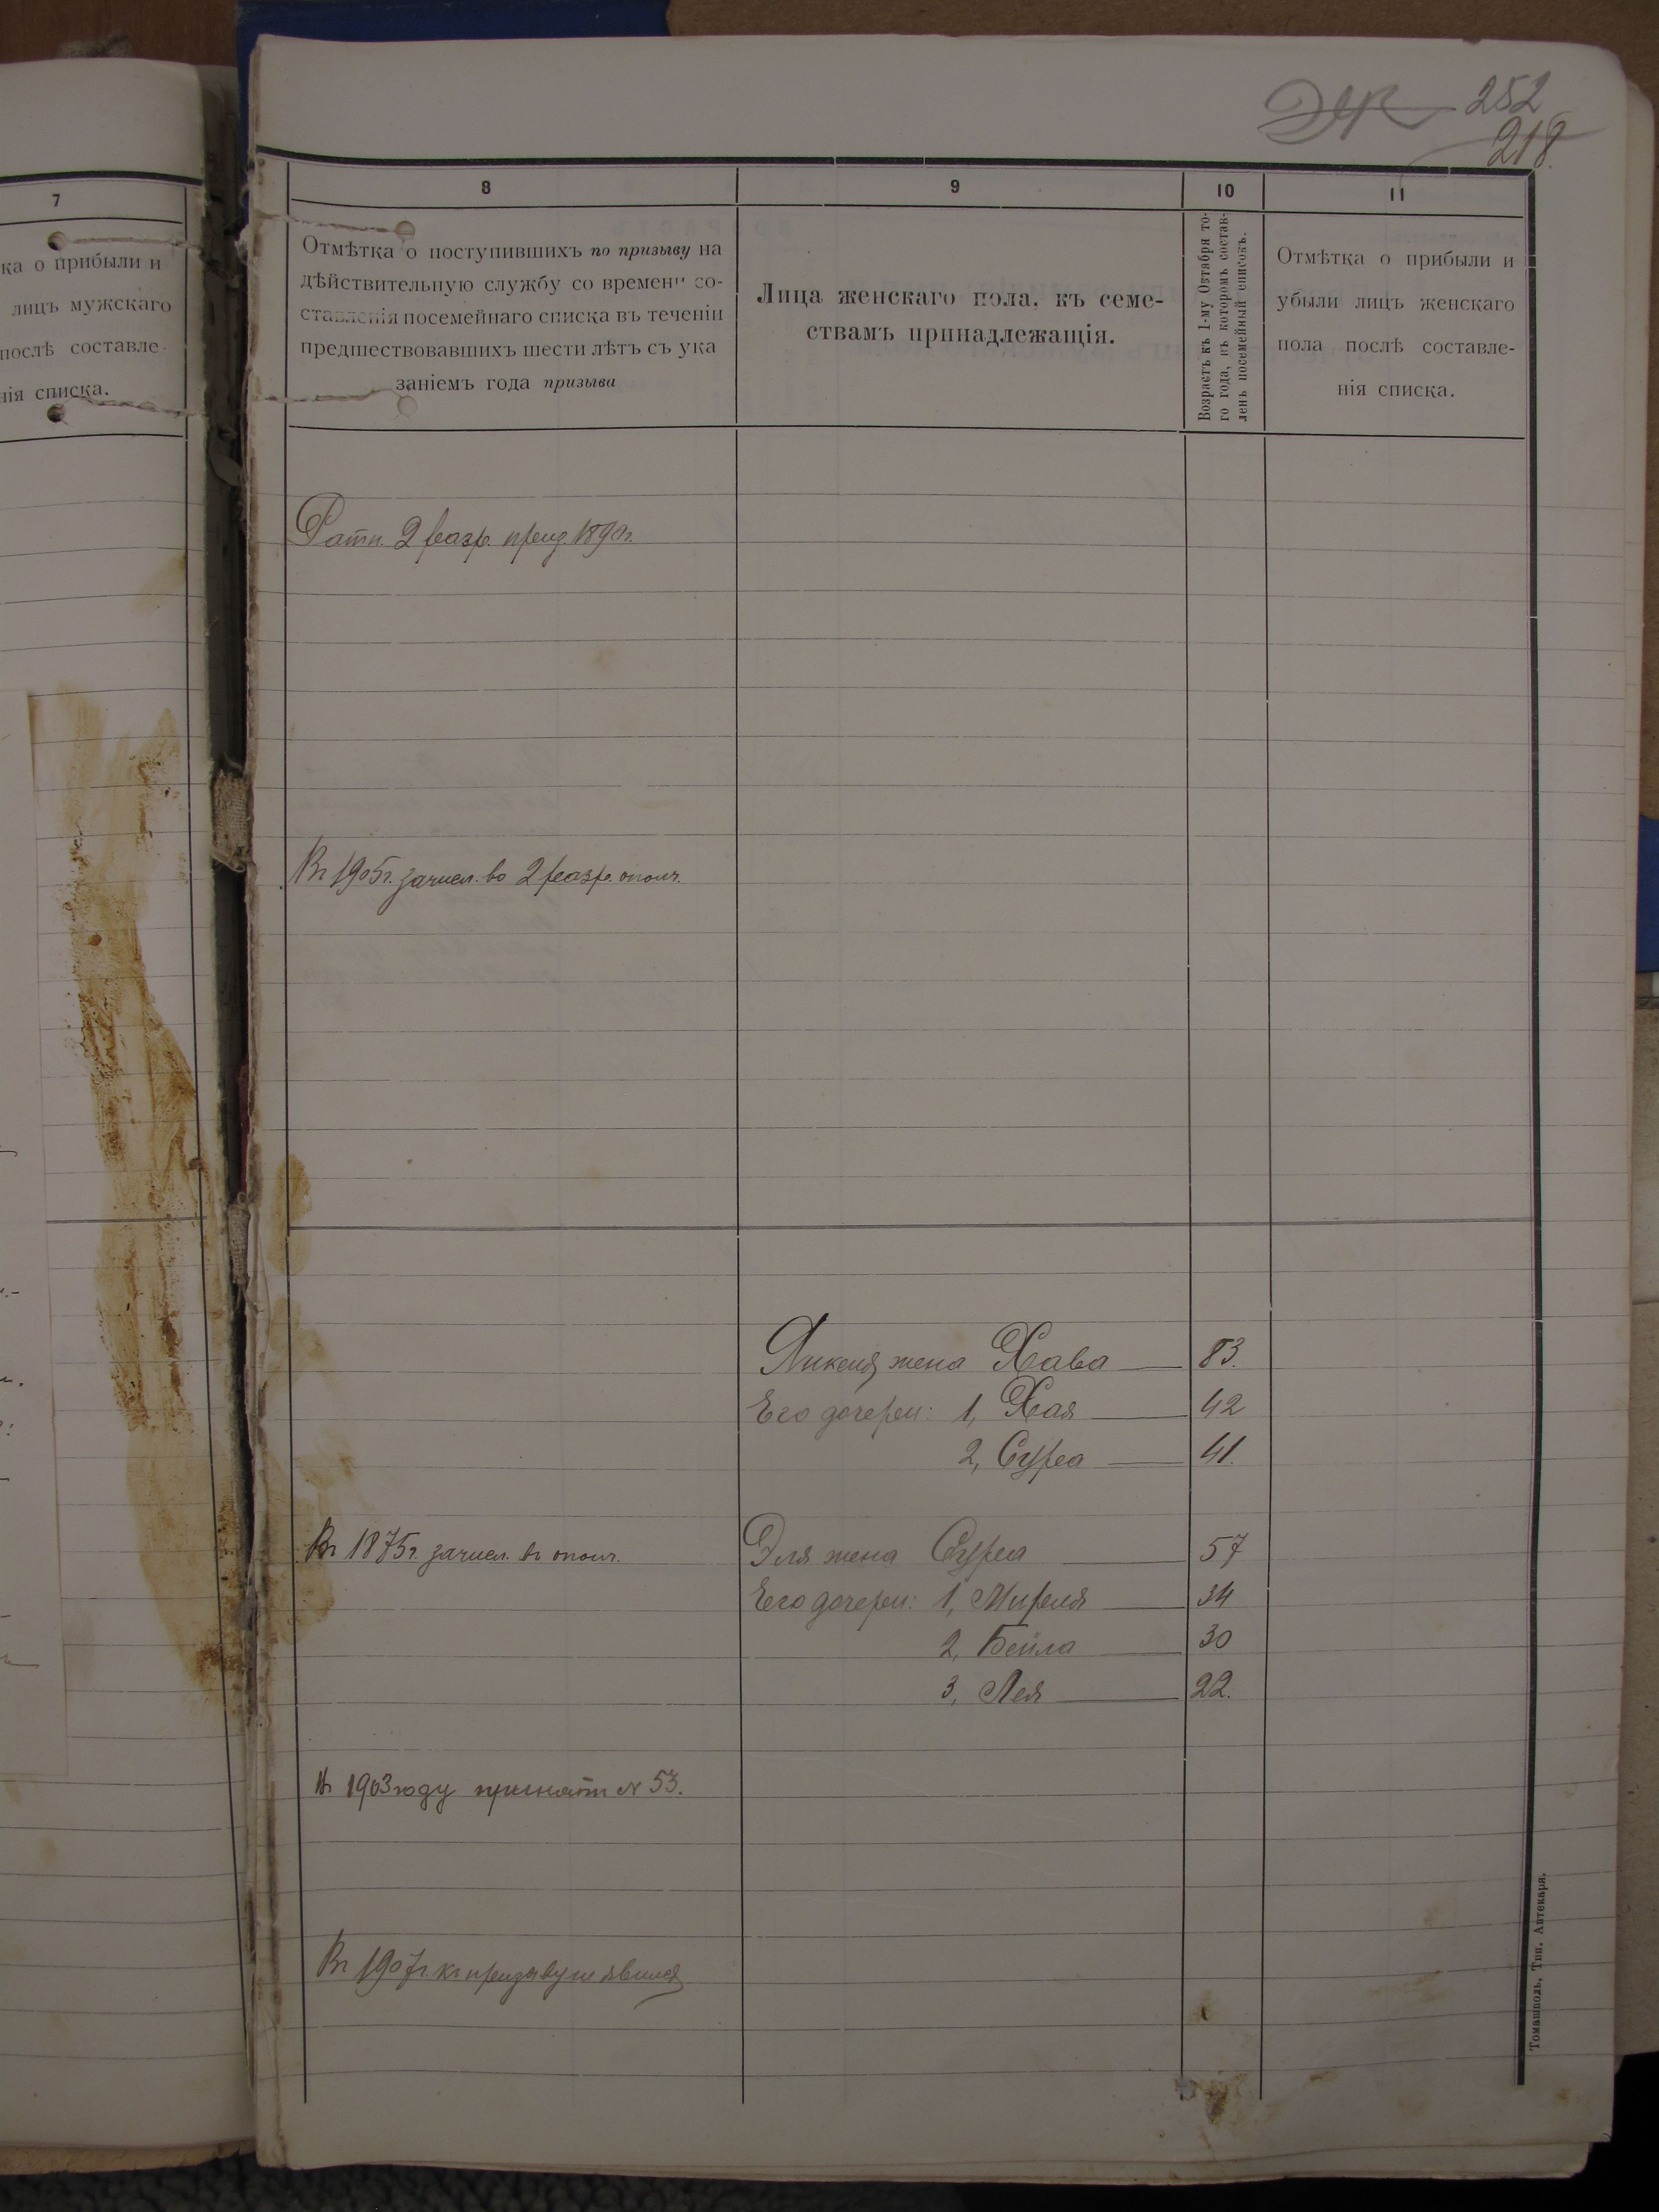 252
218.
7
ка о прибыли и
лицъ мужскаго
послѣ составле-
нія списка.
8
9
10
11
Отмѣтка о поступившихъ по призыву на
дѣйствительную службу со времени со-
ставленія посемейнаго списка въ теченіи
предшествовавшихъ шести лѣтъ съ ука
заніемъ года призыва
Лица женскаго пола, къ семе-
ствамъ принадлежащія.
Возрастъ къ 1-му Октября то-
го года, въ которомъ состав-
ленъ посемейный списокъ.
Отмѣтка о прибыли и
убыли лицъ женскаго
пола послѣ составле-
нія списка.
Ратн. 2 разр. приз. 1890г.
Въ 1905г. зачисл. во 2 разр. ополч.
жена Хава 83.
Его дочери: 1, Хая 42
2, Сура 41.
Въ 1875г. зачисл. въ ополч. Эля жена Сура 57
Его дочери: 1, Миреля 34
2, Бейла 30
3, Лея 22.
Въ 1903 году принятъ № 53.
Въ 1907г. къ призыву не явился
Томашполь, Тип. Аптекаря.